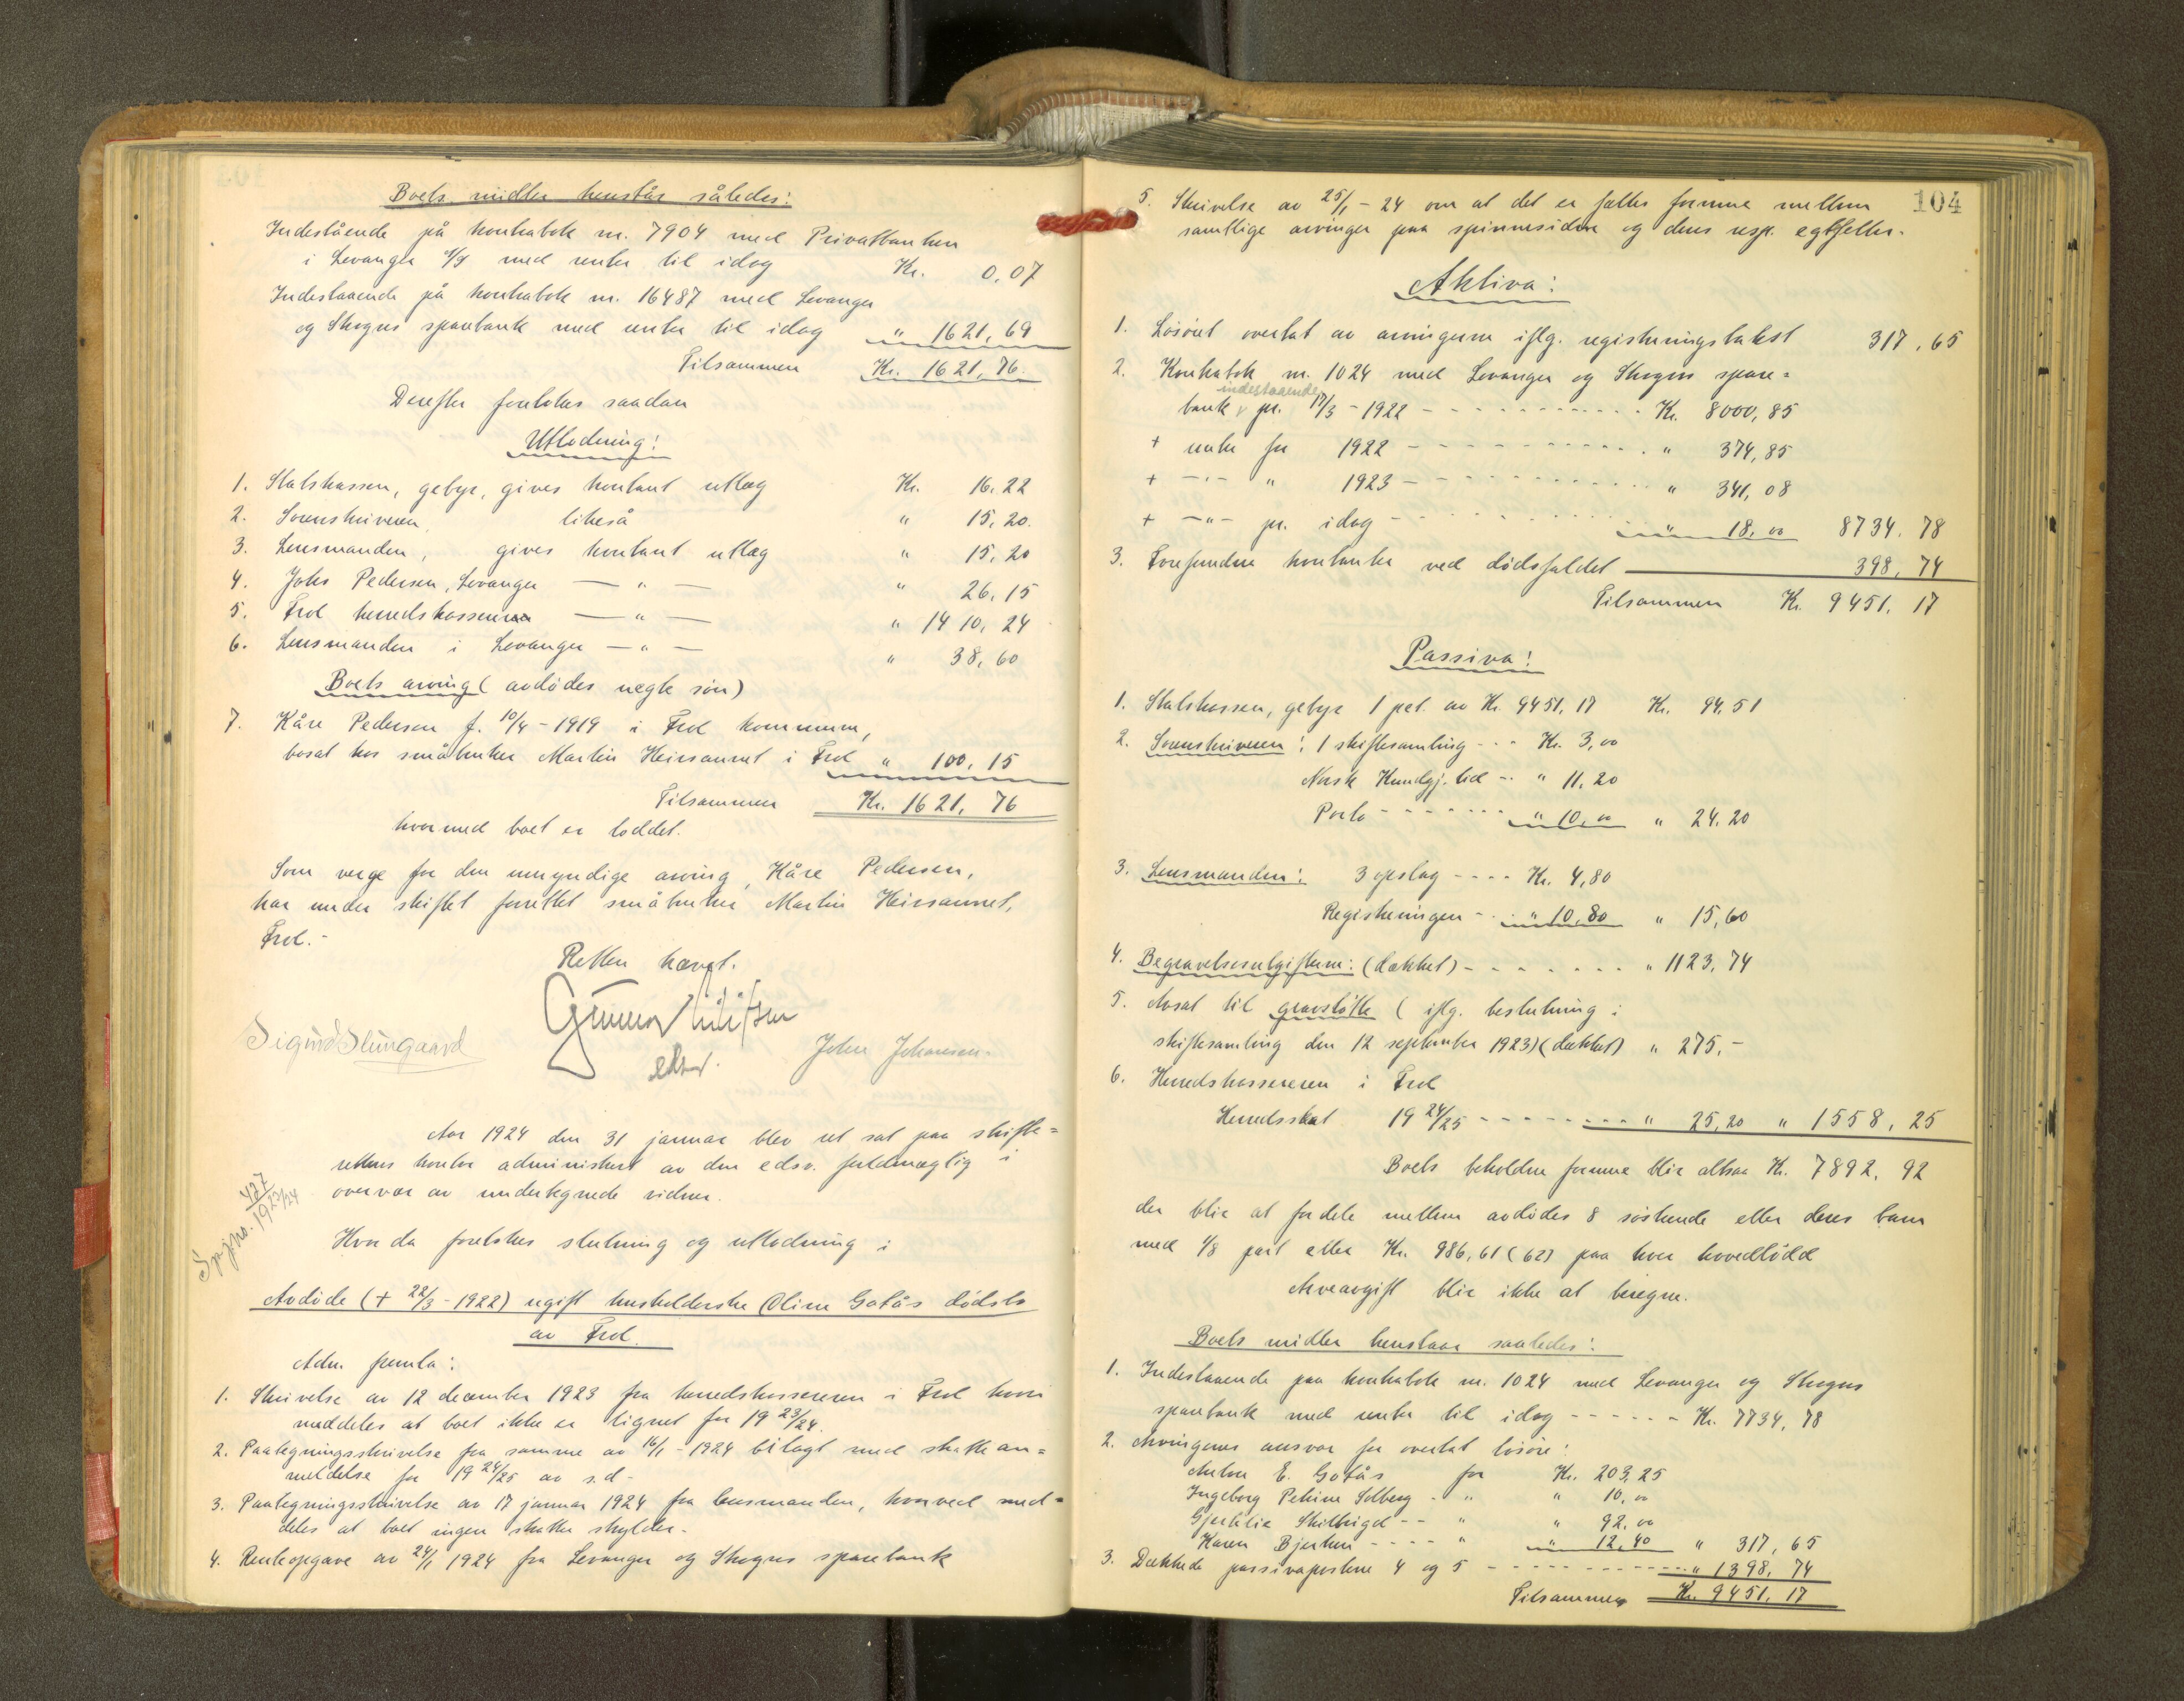 Boets midler henstår således:
Indestående på kontrabok nr. 7904 med Privatbanken
i Levanger A/S med renter til idag Kr. 0,07
Indestaaende på kontrabok nr. 16487 med Levanger
og Skogns sparebank med renter til idag " 1621,69
Tilsammen Kr. 1621,76.
Derefter foretokes saadan
Utlodning:
1. Statskassen, gebyr, gives kontant utlæg Kr. 16.22
2. Sorenskriveren, likeså " 15,20.
3. Lensmanden, gives kontant utlæg " 15,20
4. Johs Pedersen, Levanger — " — " 26,15
5. Frol herredskasserer — " — " 1410,24
6. Lensmanden i Levanger — " — " 38,60
Boets arving (avdødes uegte søn)
7. Kåre Pedersen f. 10/4 - 1919 i Frol kommune,
bosat hos småbruker Martin Heirsaunet i Frol " 100,15
Tilsammen Kr. 1621,76
hvormed boet er loddet.
Som verge for den umyndige arving, Kåre Pedersen,
har under skiftet forrettet småbruker Martin Heirsaunet,
Frol.-
Retten hævet.
Gunnar
Sigurd Slungaard
John Johansen.
Aar 1924 den 31 januar blev ret sat paa skifte=
rettens kontor administrert av den edsv. fuldmægtig i
overvær av undertegnede vidner.
427
Sp.jnr. 1923/24
Hvor da foretokes slutning og utlodning i
Avdøde (+ 22/3 - 1922) ugift husholderske Oline Gotås dødsbo
av Frol.
Adm. fremla:
1. Skrivelse av 12 december 1923 fra herredskassereren i Frol hvori
meddeles at boet ikke er lignet for 1923/24.
2. Paategningsskrivelse fra samme av 16/1 - 1924 bilagt med skattean=
meldelse for 1924/25 av s.d-
3. Paategningsskrivelse av 17 januar 1924 fra lensmanden, hvorved med=
deles at boet ingen skatter skylder-
4. Renteopgave av 24/1 1924 fra Levanger og Skogns sparebank
104
5. Skrivelse av 25/1 - 24 om at det er fælles formue mellem
samtlige arvinger paa spinnesiden og deres resp. egtefeller.
Aktiva:
1. Løsøret overtat av arvingerne iflg. registreringstakst 317,65
2. Kontrabok nr. 1024 med Levanger og Skogns spare=
indestaaende
bank pr. 17/3 - 1922 - - - Kr. 8000,85
+ renter for 1922 - - - " 374,85
+ -"- " 1923 - - - " 341,08
+ -"- pr. idag - - - " 18,00 8734.78
3. Forefundne kontanter ved dødsfaldet — 398,74
Tilsammen Kr. 9451,17
Passiva:
1. Statskassen, gebyr 1 pct. av Kr. 9451,17 Kr. 94.51
2. Sorenskriveren: 1 skiftesamling - - - Kr. 3,00
Norsk Kundgj. tid - - " 11.20
Porto - - - " 10,00 " 24.20
3. Lensmanden: 3 opslag - - - - Kr. 4,80
Registreringen - - " 10,80 " 15,60
4. Begravelsesutgifterne: (dækket) - - - " 1123,74
5. Avsat til gravstøtte (iflg. beslutning i
skiftesamling den 12 september 1923) (dækket) " 275.-
6. Herredskassereren i Frol
Herredsskat 1924/25 - - - " 25,20 " 1558,25
Boets beholdne formue blir altsaa Kr. 7892,92
der blir at fordele mellem avdødes 8 søskende eller deres barn
med 1/8 part eller Kr. 986,61 (62) paa hver hovedlodd
Arveavgift blir ikke at beregne.
Boets midler henstaar saaledes:
1. Indestaaende paa kontrabok nr. 1024 med Levanger og Skogns
sparebank med renter til idag - - - Kr. 7734,78
2. Arvingenes ansvar for overtat løsøre:
Anton E. Gotås for Kr. 203,25
Ingeborg Petrine Solberg - " " 10,00
Gjertine - - " " 92,00
Karen Bjerken - - - " " 12,40 " 317,65
3. Dækkede passivaposter 4 og 5 - - - " 1398,74
Tilsammen Kr. 9451,17